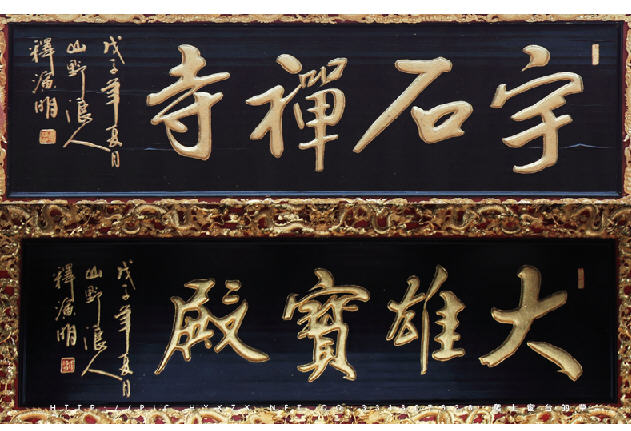 宇石禪寺
戊子年夏月
山野浪人
釋明
大雄寶殿
戊子年夏月
山野浪人
釋明